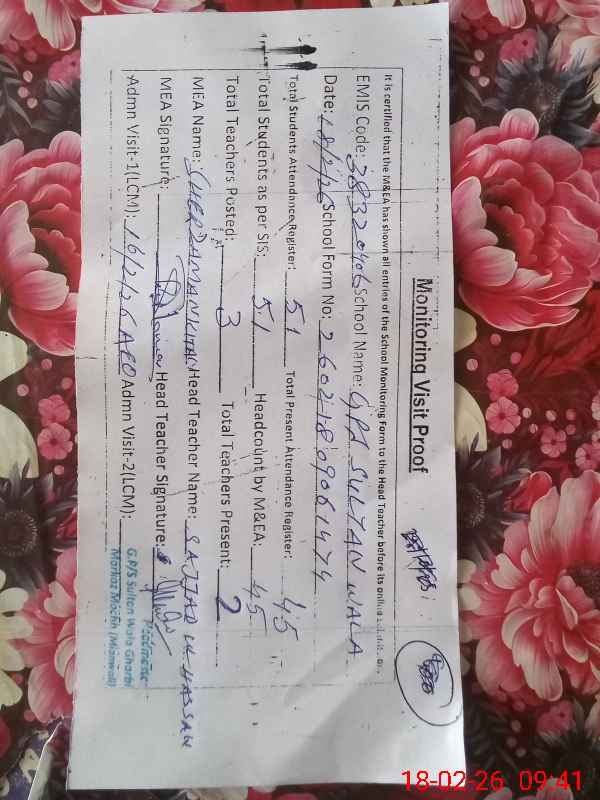 Monitoring Visit Proof
It is certified that the M&EA has shown all entries of the School Monitoring Form to the Head Teacher before its online
EMIS Code: 38320406 School Name: GPS SULTAN WALA
Date: 18/2/26 School Form No: 26021809061474
Total Students Attendance Register: 51 Total Present Attendance Register: 45
Total Students as per SIS: 51 Headcount by M&EA: 45
Total Teachers Posted: 3 Total Teachers Present: 2
MEA Name: SHER ZAMAN KHAN Head Teacher Name: SAJJAD UL HASSAN
MEA Signature: Head Teacher Signature:
Admn Visit-1(LCM): 16/2/26 AEO Admn Visit-2(LCM):
G.P/S Sultan Wala Gharbi
Markaz Mochh (Mianwali)
18-02-26 09:41